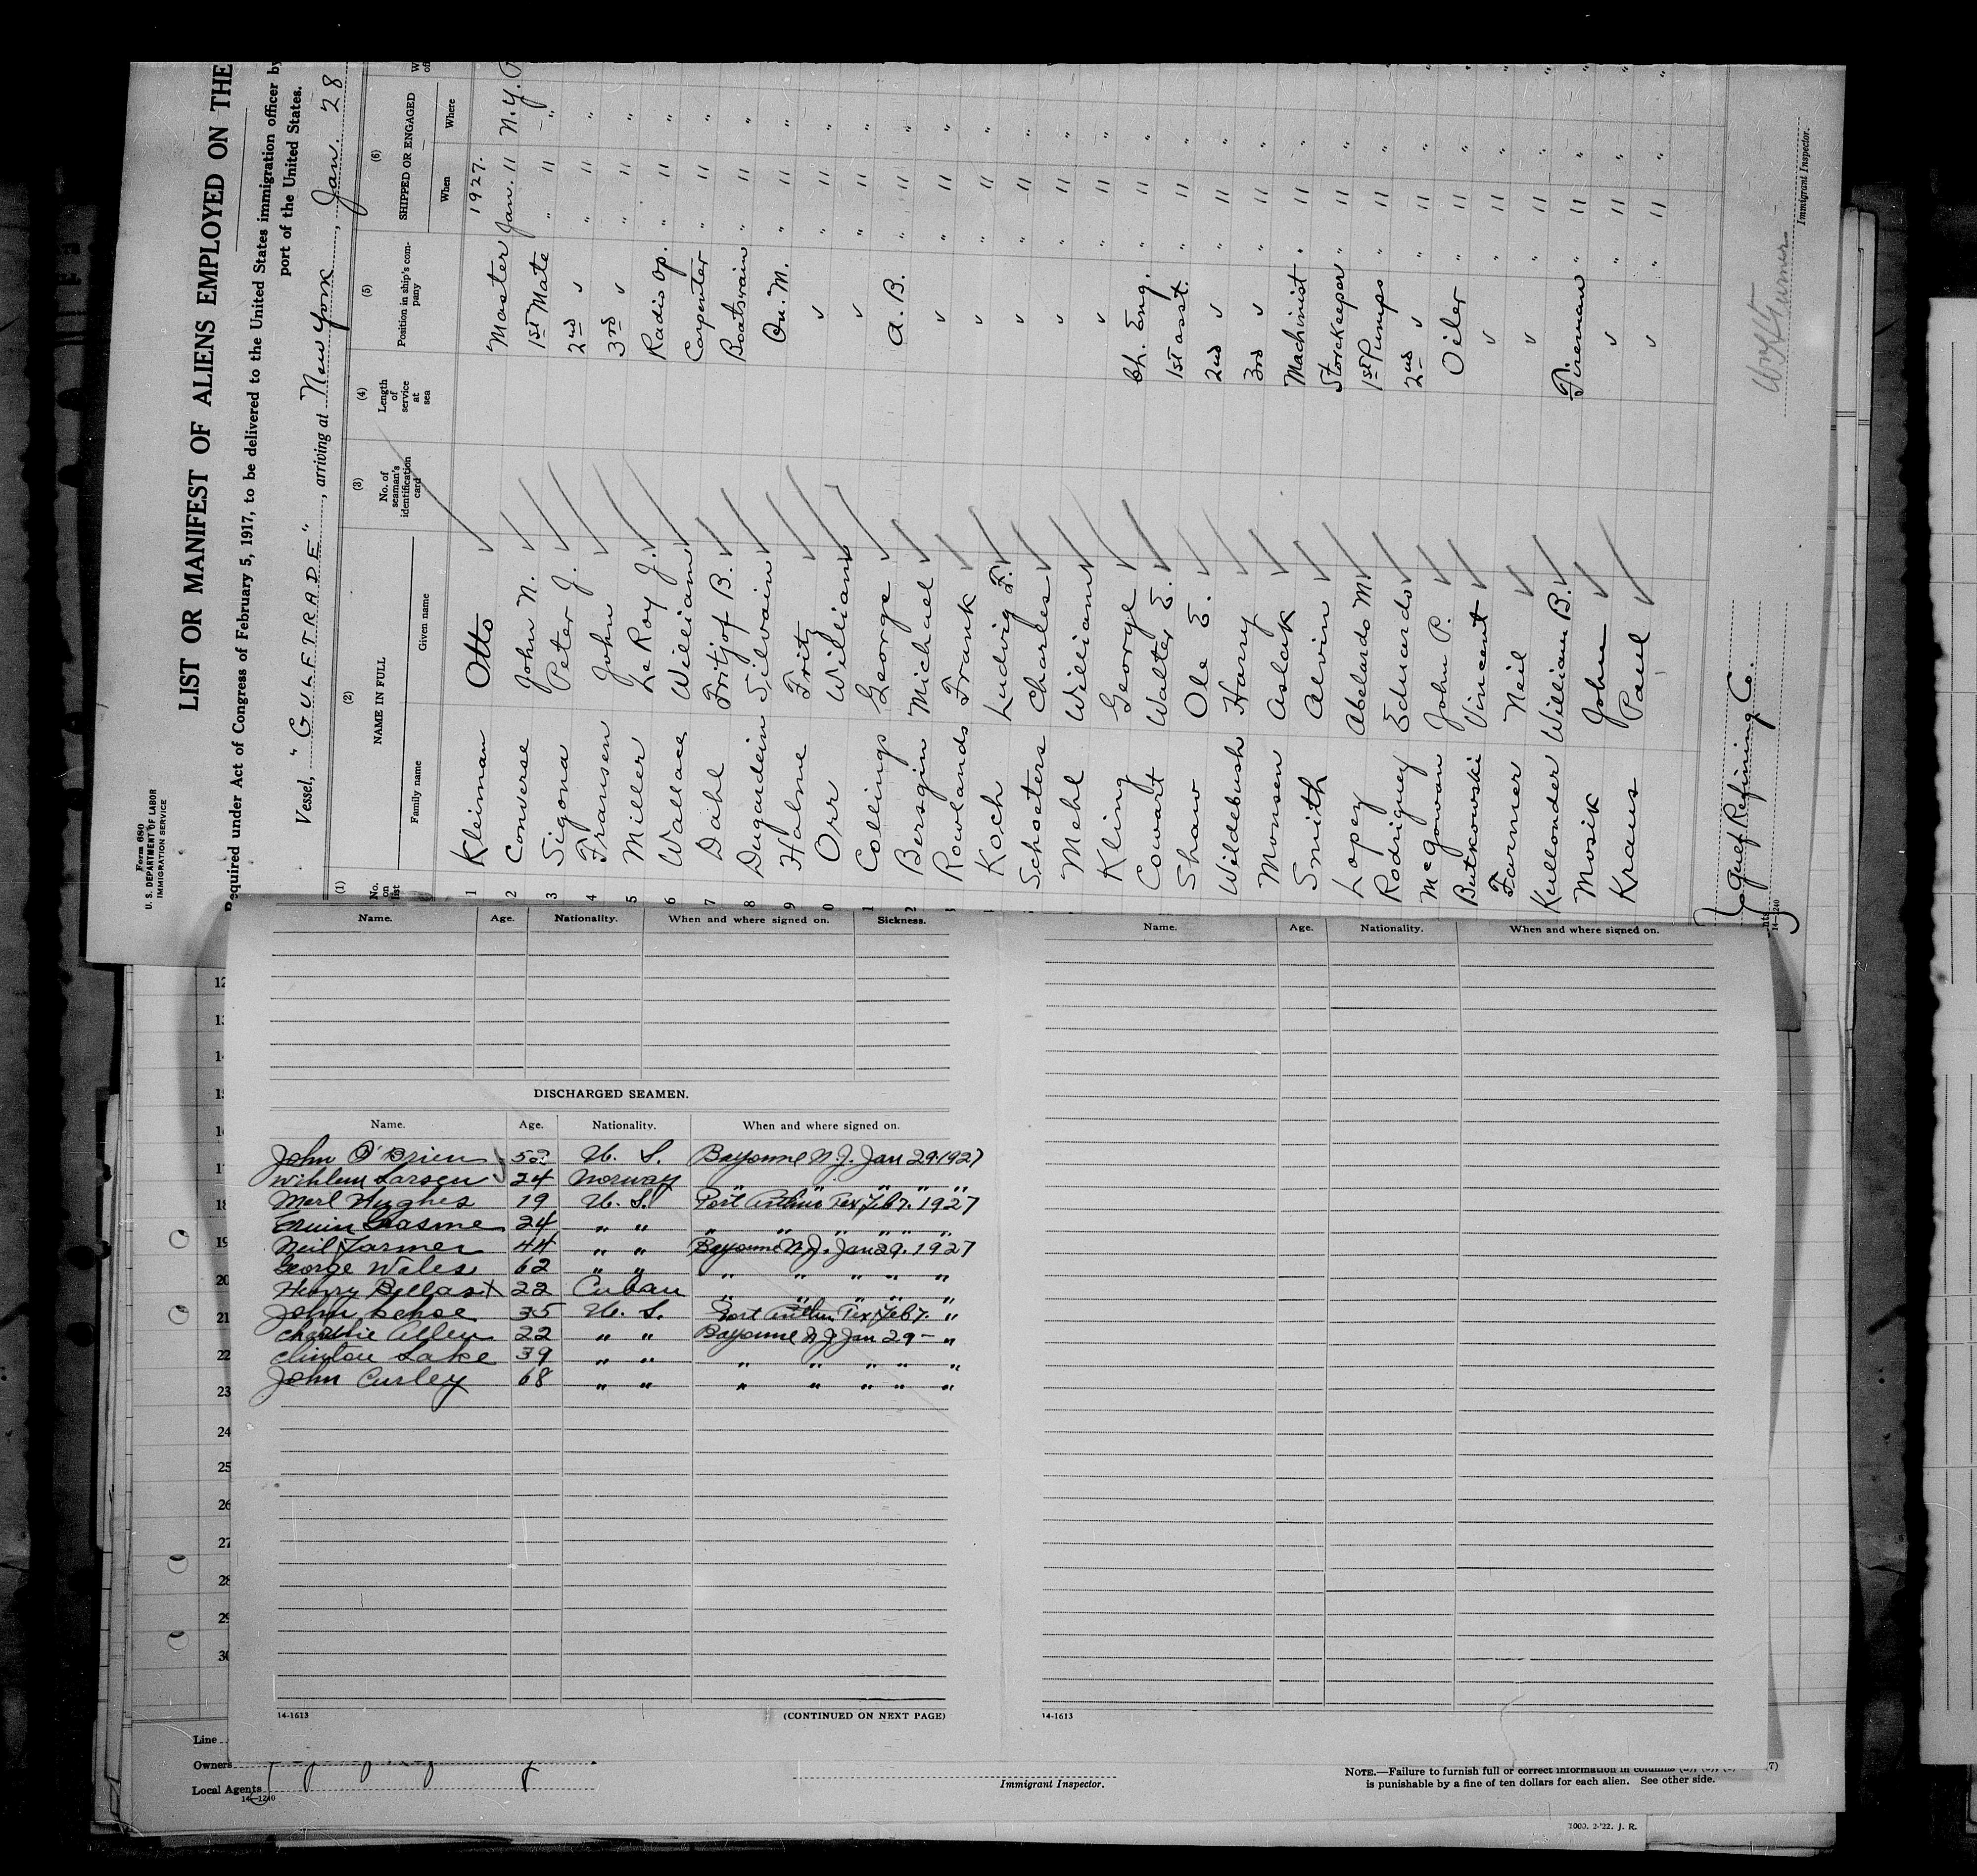 Form 680
U. S. DEPARTMENT OF LABOR
IMMIGRATION SERVICE
LIST OR MANIFEST OF ALIENS EMPLOYED ON THE
Required under Act of Congress of February 5, 1917, to be delivered to the United States immigration officer by
port of the United States.
Vessel, "GULFTRADE", arriving at New York, Jan. 28
(1) (2) (3) (4) (5) (6)
No. on list NAME IN FULL No. of seaman's identification card Length of service at sea Position in ship's company SHIPPED OR ENGAGED
Family name Given name When Where
1927.
1 Kleiman Otto Master Jan. 11 N.Y.
2 Converse John N. 1st Mate " 11 "
3 Sigona Peter J. 2nd ✓ " 11 "
4 Fransen John 3rd ✓ " 11 "
5 Miller LeRoy J. Radio Op. " 11 "
6 Wallace William Carpenter " 11 "
7 Dahl Fritjof B. Boatswain " 11 "
8 Dugardein Silvain Qu. M. " 11 "
9 Halme Fritz ✓ " 11 "
0 Orr William ✓ " 11 "
1 Collings George A. B. " 11 "
2 Bersgin Michael ✓ " 11 "
3 Rowlands Frank ✓ " 11 "
4 Koch Ludvig F. ✓ " 11 "
Schoeters Charles ✓ " 11 "
Mehl William ✓ " 11 "
Kling George Ch. Eng. " 11 "
Cowart Walter E. 1st asst. " 11 "
Shaw Ole E. 2nd ✓ " 11 "
Wildebush Harry 3rd ✓ " 11 "
Monsen Aslak Machinist " 11 "
Smith Alvin Storekeeper " 11 "
Lopez Abelardo M. 1st Pumps " 11 "
Rodriguez Eduardo 2nd ✓ " 11 "
McGowan John P. Oiler " 11 "
Butkowski Vincent ✓ " 11 "
Farmer Neil ✓ " 11 "
Kullonder William B. Fireman " 11 "
Mosik John ✓ " 11 "
Kraus Paul ✓ " 11 "
Gulf Refining Co.
Immigrant Inspector.
14—1240
Name. Age. Nationality. When and where signed on. Sickness.
Name. Age. Nationality. When and where signed on.
DISCHARGED SEAMEN.
Name. Age. Nationality. When and where signed on.
John O'Brien 52 U. S. Bayonne N.J. Jan 29 1927
Wihlem Larsen 24 Norway " " " " "
Merl Hughes 19 U. S. Port Arthur Tex Feb 7. 1927
Erwin Grasme 24 " " " " " " "
Neil Farmer 44 " " Bayonne N.J. Jan 29. 1927
George Wales 62 " " " " " " "
Henry Bellas X 22 Cuban " " " " "
John Kehoe 35 U. S. Port Arthur Tex Feb 7. "
Charlie Allen 22 " " Bayonne N.J. Jan 29 - "
Clinton Lake 39 " " " " " " "
John Curley 68 " " " " " " "
14-1613 (CONTINUED ON NEXT PAGE)
14-1613
12
13
14
15
16
17
18
19
20
21
22
23
24
25
26
27
28
29
30
Line
Owners
Local Agents
14—1240
Immigrant Inspector.
NOTE.—Failure to furnish full or correct information in columns
is punishable by a fine of ten dollars for each alien. See other side.
1000. 2-'22. J. R.